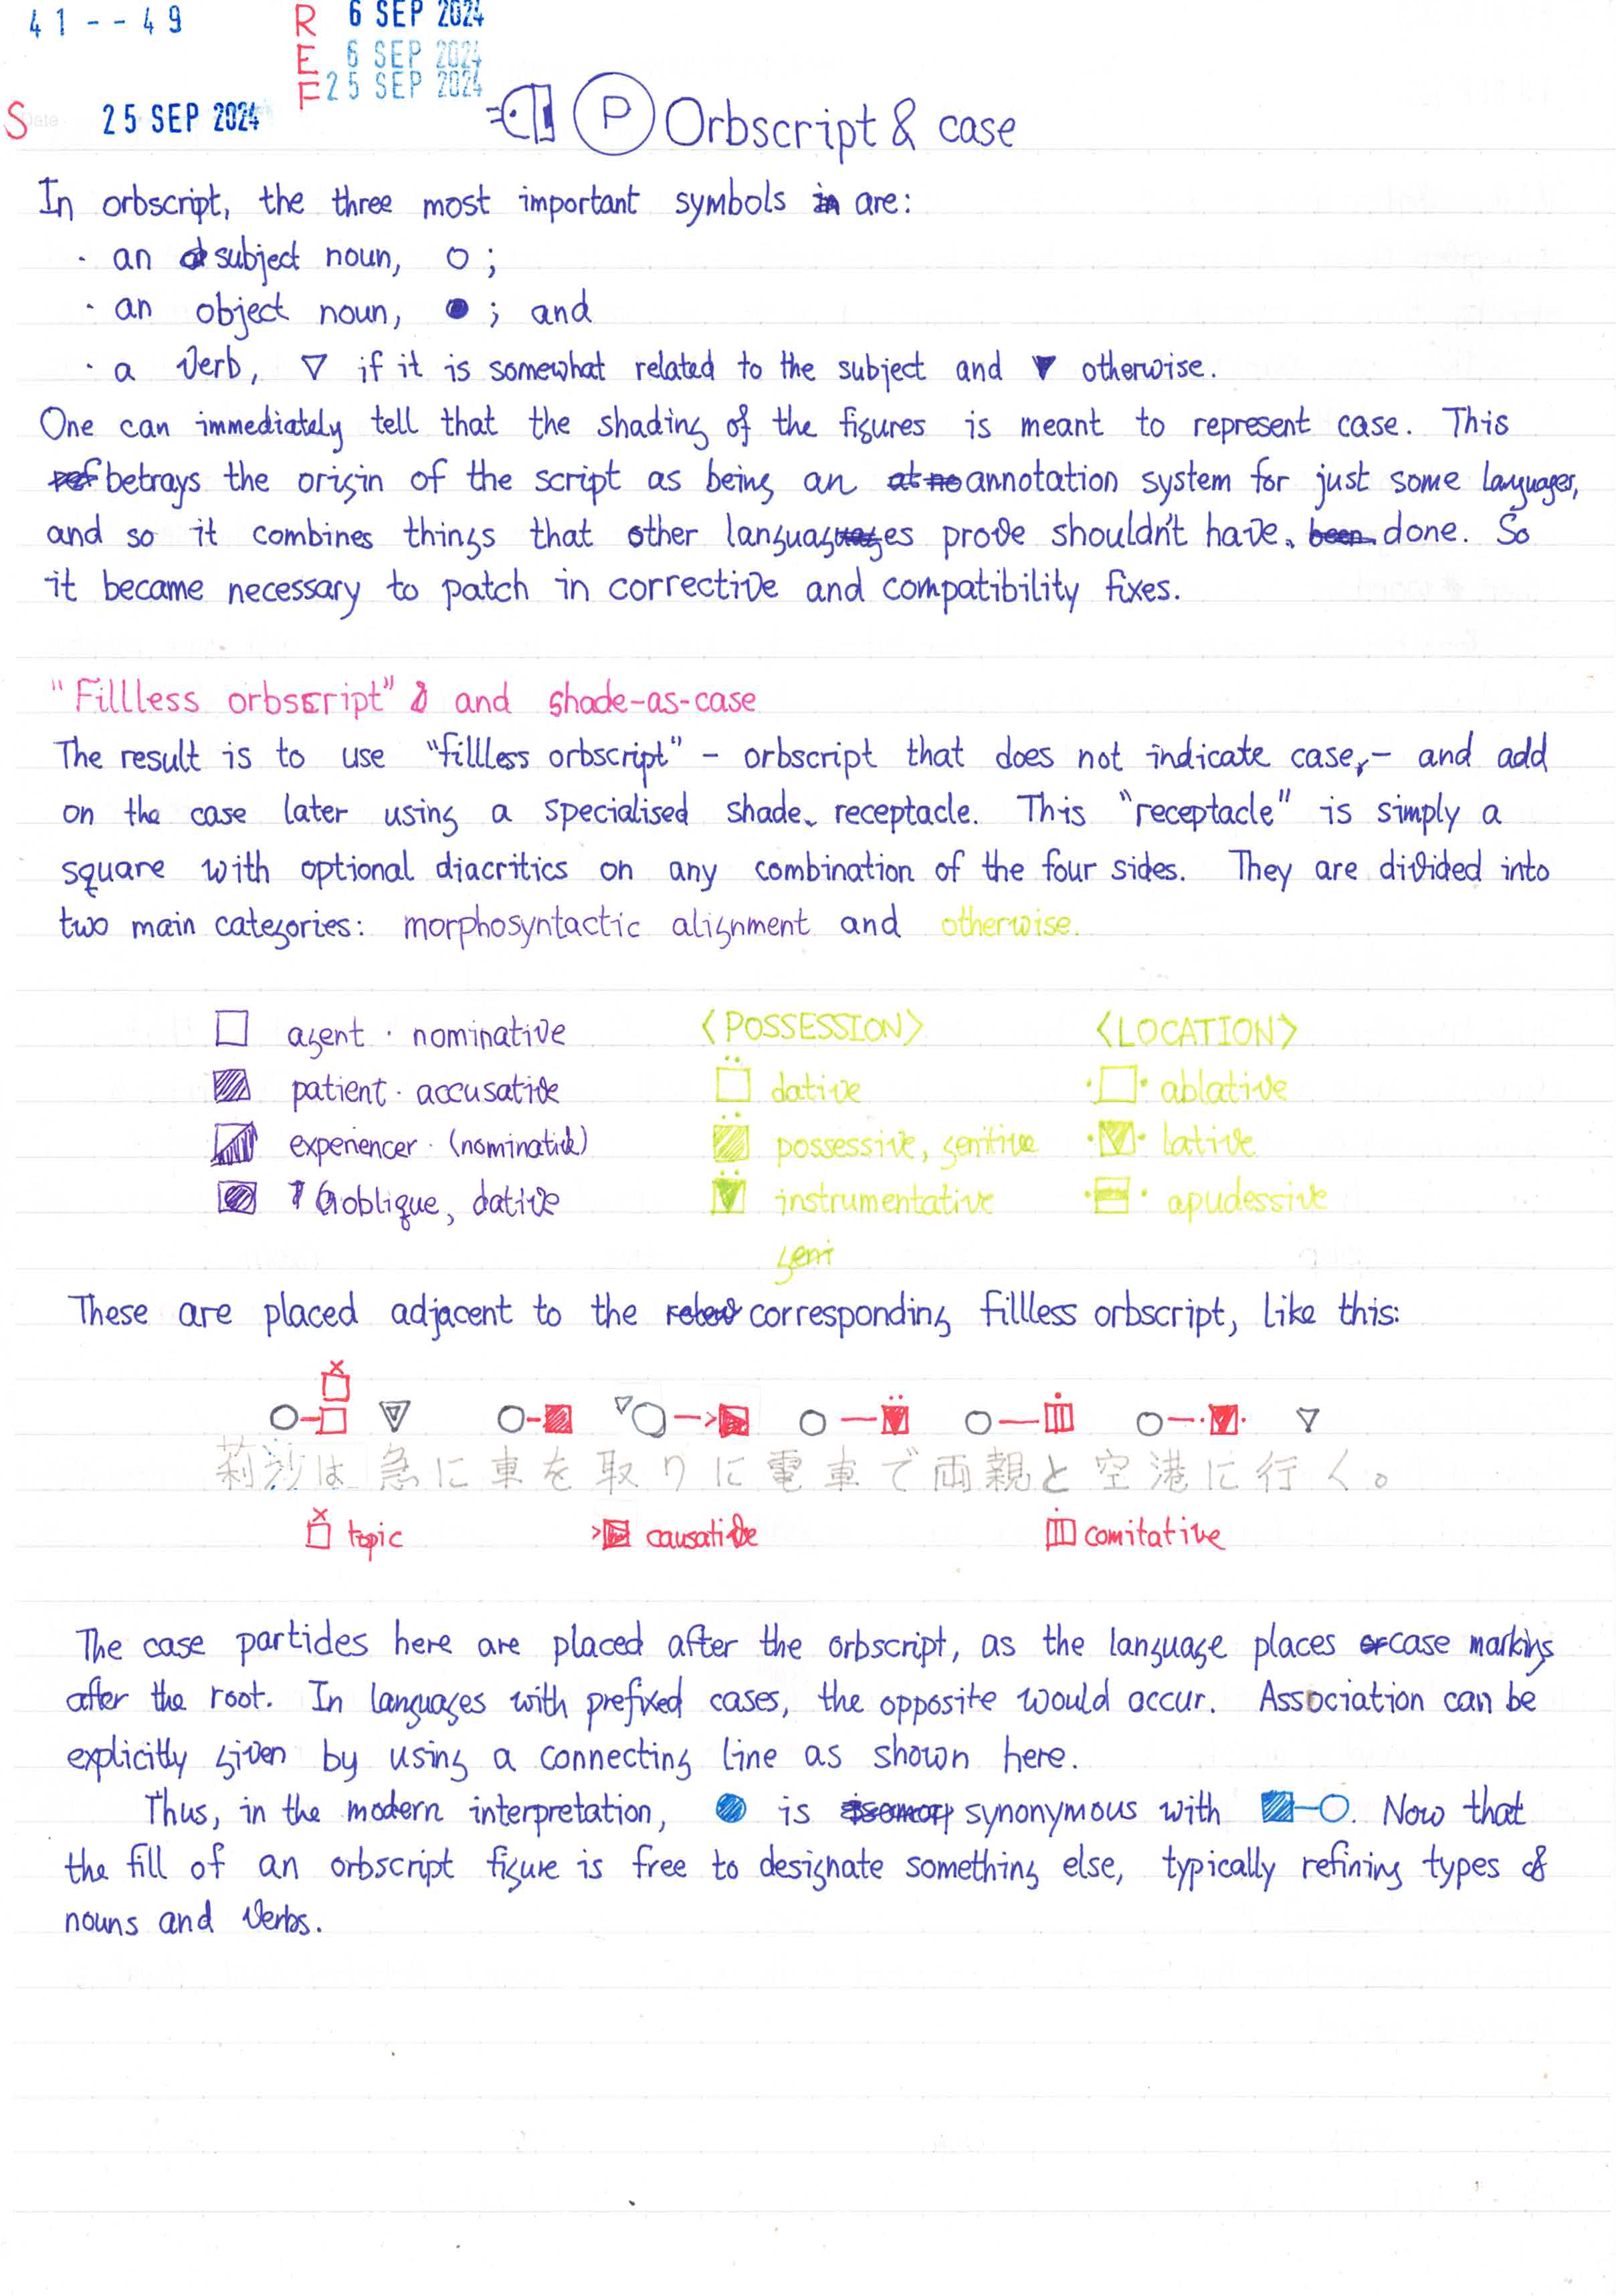 41--49
R 6 SEP 2024
E 6 SEP 2024
F 25 SEP 2024
S Date 25 SEP 2024
P Orbscript & case
In orbscript, the three most important symbols in are:
· an subject noun, ○ ;
· an object noun, ● ; and
· a verb, ▽ if it is somewhat related to the subject and ▼ otherwise.
One can immediately tell that the shading of the figures is meant to represent case. This
betrays the origin of the script as being an annotation system for just some languages,
and so it combines things that other languages prove shouldn't have been done. So
it became necessary to patch in corrective and compatibility fixes.
"Fillless orbscript" and shade-as-case
The result is to use "fillless orbscript" – orbscript that does not indicate case, – and add
on the case later using a specialised shade receptacle. This "receptacle" is simply a
square with optional diacritics on any combination of the four sides. They are divided into
two main categories: morphosyntactic alignment and otherwise.
agent · nominative
patient · accusative
experiencer · (nominative)
oblique, dative
<POSSESSION>
dative
possessive, genitive
instrumentative
geni
<LOCATION>
ablative
lative
apudessive
These are placed adjacent to the corresponding fillless orbscript, like this:
莉沙は急に車を取りに電車で両親と空港に行く。
topic causative comitative
The case particles here are placed after the orbscript, as the language places case markings
after the root. In languages with prefixed cases, the opposite would occur. Association can be
explicitly given by using a connecting line as shown here.
Thus, in the modern interpretation, ● is synonymous with ■–○. Now that
the fill of an orbscript figure is free to designate something else, typically refining types of
nouns and verbs.